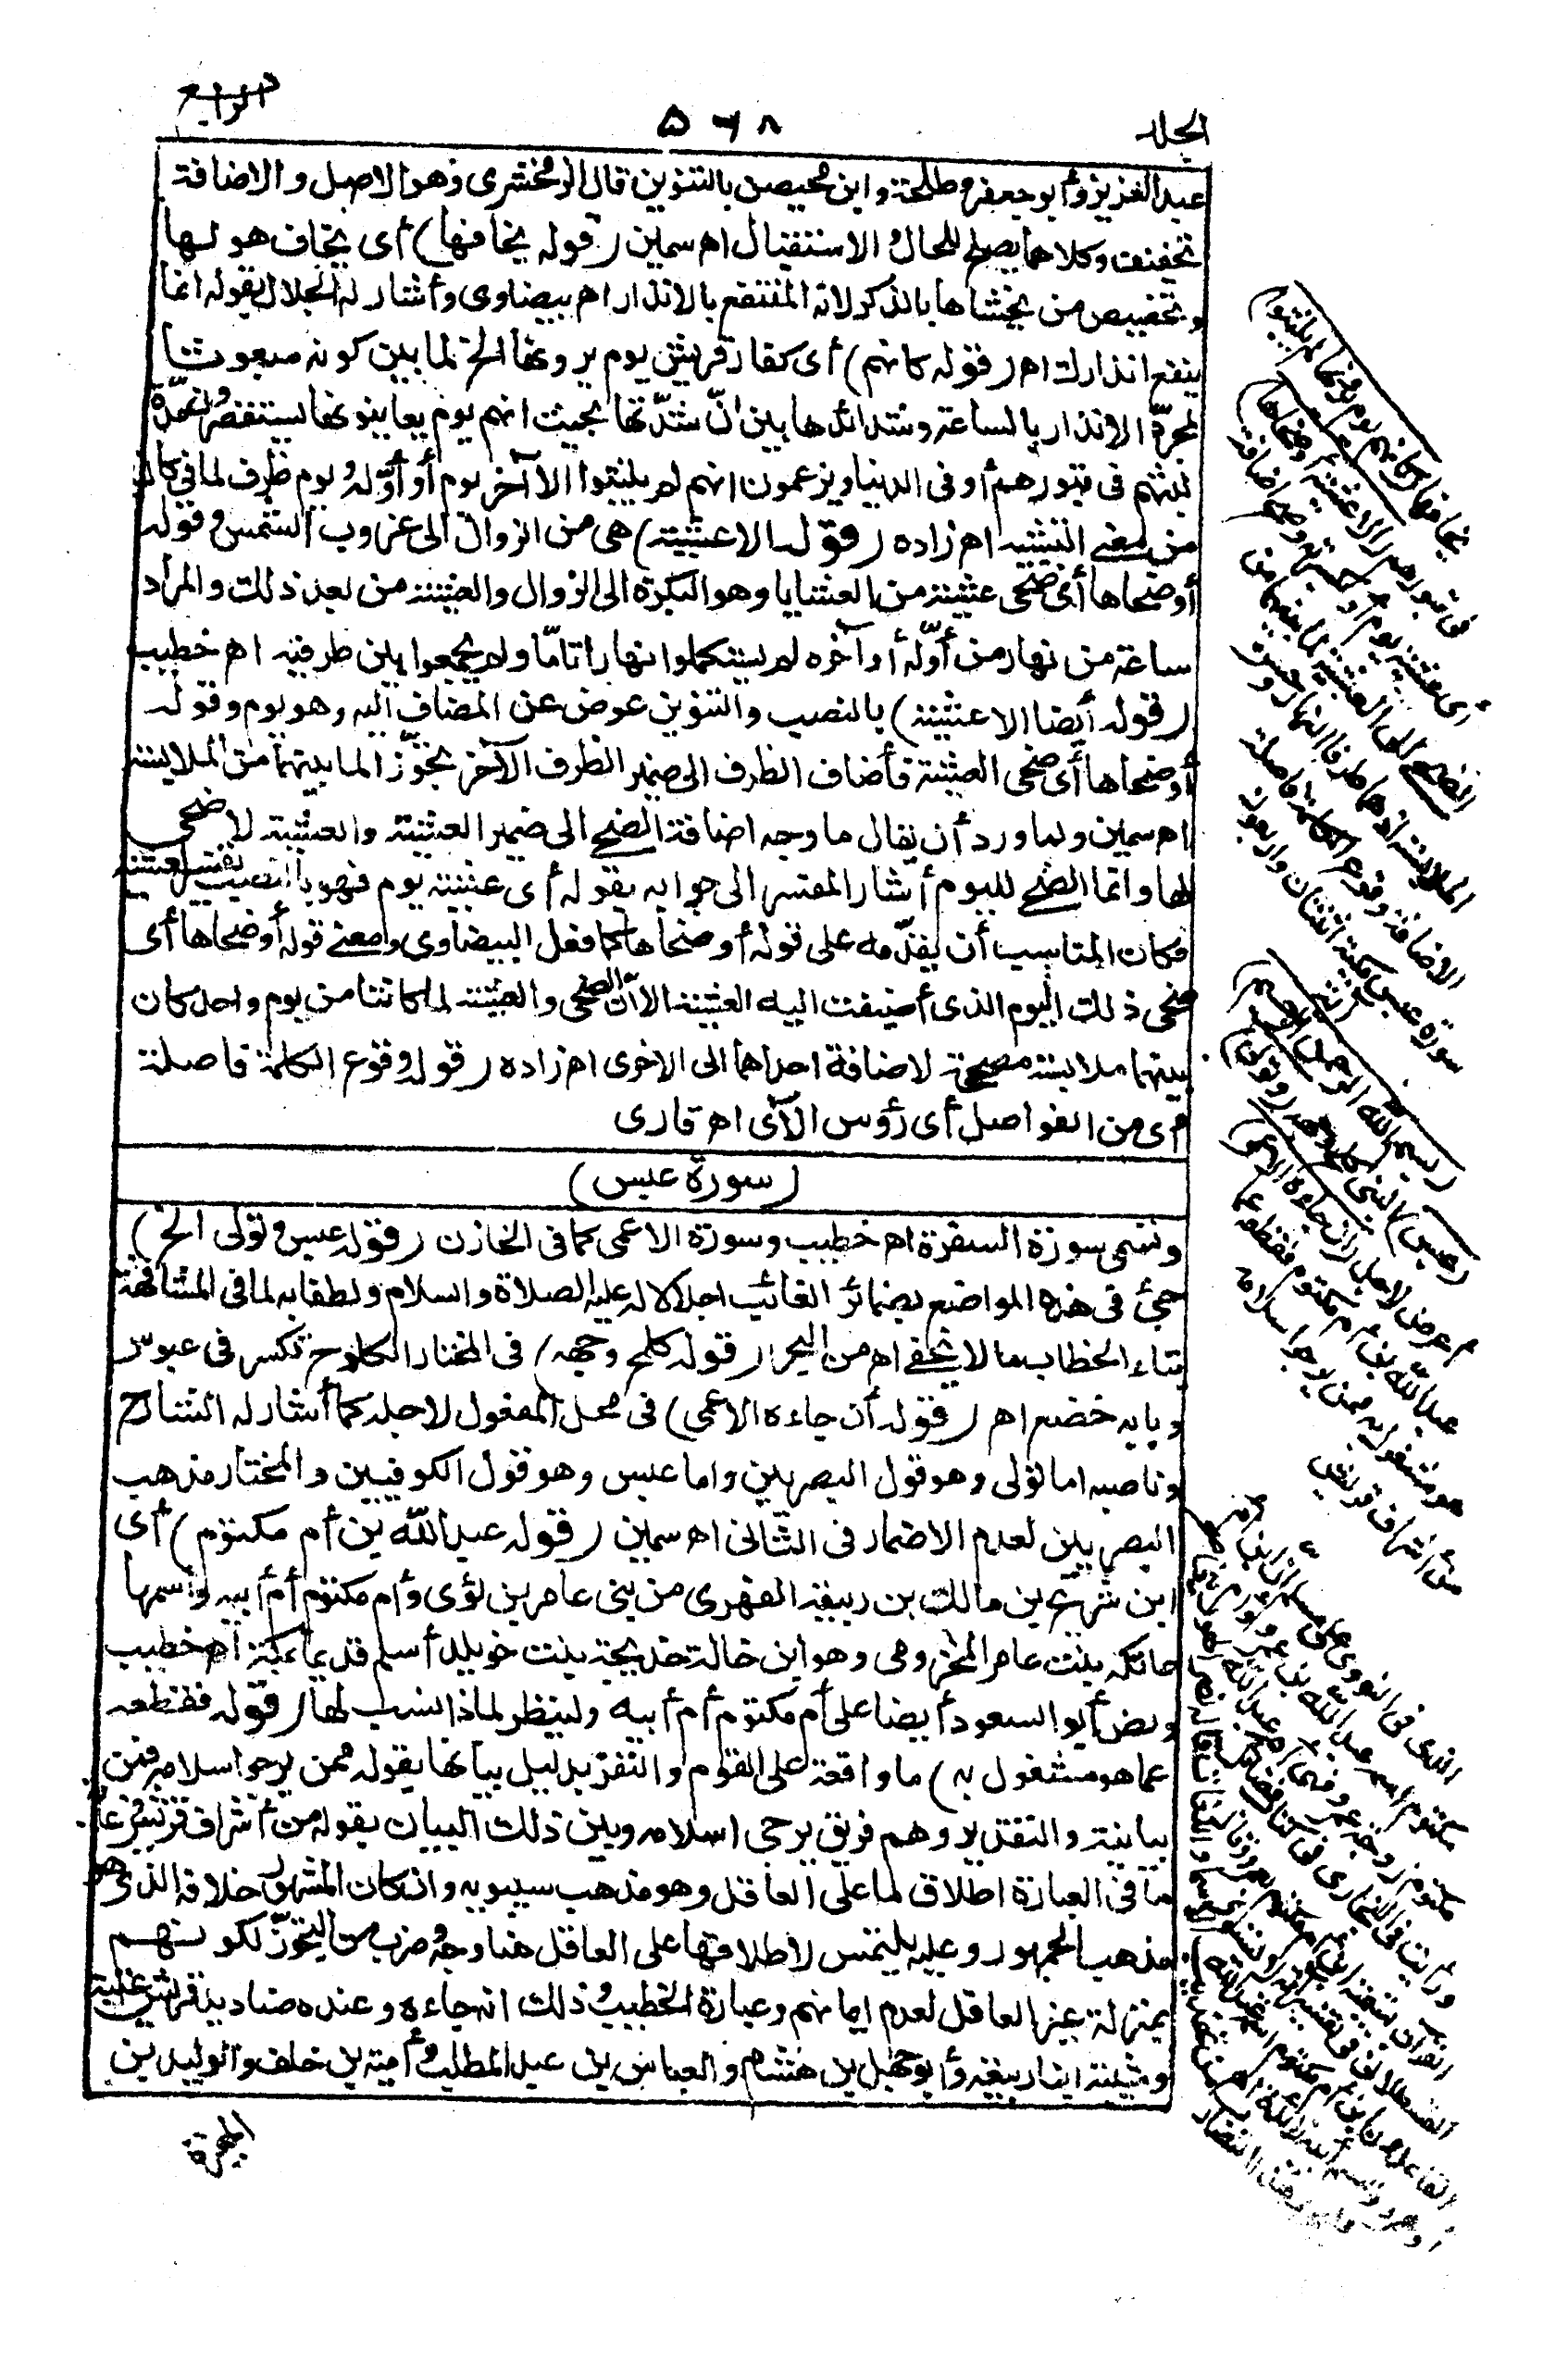 الجلد
٥٦٨
الرابع
عبد العزيز وأبو جعفر وطلحة وابن محيصن بالتنوين قال الزمخشرى وهو الاصل والاضافة
تخفيف وكلاهما يصلح للحال والاستقبال اه سمين (قوله يخافها) أى يخاف هولها
وتخصيص من يخشاها بالذكر لانه المنتفع بالانذار اه بيضاوى وأشار له الجلال بقوله انما
ينفع انذارك اه (قوله كانهم) أى كفار قريش يوم يرونها الخ لما بين كونه مبعوثا
لمجرّد الانذار بالساعة وشدائدها بين انّ شدّتها بحيث انهم يوم يعاينونها يستقصرون مدّة
لبثهم فى قبورهم أو فى الدنيا ويزعمون انهم لم يلبثوا الا آخر يوم أو أوّله ويوم ظرف لما فى كان
من معنى التشبيه اه زاده (قوله الا عشية) هى من الزوال الى غروب الشمس وقوله
أو ضحاها أى ضحى عشية من العشايا وهو البكرة الى الزوال والعشية من بعد ذلك والمراد
ساعة من نهار من أوّله أو آخره لم يستكملوا نهارا تامّا ولم يجمعوا بين طرفيه اه خطيب
(قوله أيضا الا عشية) بالنصب والتنوين عوض عن المضاف اليه وهو يوم وقوله
أو ضحاها أى ضحى العشية فأضاف الظرف الى ضمير الظرف الآخر تجوّزا لما بينهما من الملابسة
اه سمين ولما ورد أن يقال ما وجه اضافة الضحى الى ضمير العشية والعشية لا ضحى
لها وانما الضحى لليوم أشار المفسر الى جوابه بقوله أى عشية يوم فهو بالنصب تفسير لعشية
فكان المناسب أن يقدّمه على قوله أو ضحاها كما فعل البيضاوى ومعنى قوله أو ضحاها أى
ضحى ذلك اليوم الذى أضيفت اليه العشية الا أنّ الضحى والعشية لما كانتا من يوم واحد كان
بينهما ملابسة مصححة لاضافة احداهما الى الاخرى اه زاده (قوله وقوع الكلمة فاصلة
أى من الفواصل أى رؤس الآى اه قارى
(سورة عبس)
وتسمى سورة السفرة اه خطيب وسورة الاعمى كما فى الخازن (قوله عبس وتولى الخ)
جئ فى هذه المواضع بضمائر الغائب اجلالا له عليه الصلاة والسلام ولطفا به لما فى المشافهة
بتاء الخطاب ما لا يخفى اه من البحر (قوله كلح وجهه) فى المختار الكلوح تكسر فى عبوس
وبابه خضع اه (قوله أن جاءه الاعمى) فى محل المفعول لاجله كما أشار له الشارح
وناصبه اما تولى وهو قول البصريين واما عبس وهو قول الكوفيين والمختار مذهب
البصريين لعدم الاضمار فى الثانى اه سمين (قوله عبد الله بن أم مكتوم) أى
ابن شريح بن مالك بن ربيعة الفهرى من بنى عامر بن لؤى وأم مكتوم أم أبيه واسمها
عاتكة بنت عامر المخزومى وهو ابن خالة خديجة بنت خويلد أسلم قديما بمكة اه خطيب
ونص أبو السعود أيضا على أم مكتوم أم أبيه ولينظر لماذا نسب لها (قوله فقطعه
عما هو مشغول به) ما واقعة على القوم والتقريد ليل بيانها بقوله ممن يرجو اسلامه فمن
بيانية والتقدير وهم فريق يرجى اسلامه وبين ذلك البيان بقوله من أشراف قريش
ما فى العبارة اطلاق لما على العاقل وهو مذهب سيبويه وان كان المشهور خلافه الذى هو
مذهب الجمهور وعليه يلتمس لاطلاقها على العاقل هنا وجه وضرب من التجوّز لكونهم
بمنزلة غير العاقل لعدم ايمانهم وعبارة الخطيب وذلك انه جاءه وعنده صناديد قريش عتبة
وشيبة ابنا ربيعة وأبو جهل بن هشام والعباس بن عبد المطلب وأمية بن خلف والوليد بن
المغيرة
يخافها كانهم يوم يرونها لم يلبثوا
فى قبورهم الا عشية أو ضحاها
أى عشية يوم أو بكرته وصح اضافة
الضحى الى العشية لما بينهما من
الملابسة اذ هما طرفا النهار وحسن
الاضافة وقوع الكلمة فاصلة
سورة عبس مكية اثنتان وأربعون
آية
بسم الله الرحمن الرحيم
(عبس) النبى كلح وجهه (وتولى)
أعرض لاجل (أن جاءه الاعمى)
عبد الله بن أم مكتوم فقطعه عما
هو مشغول به ممن يرجو اسلامه
من أشراف قريش